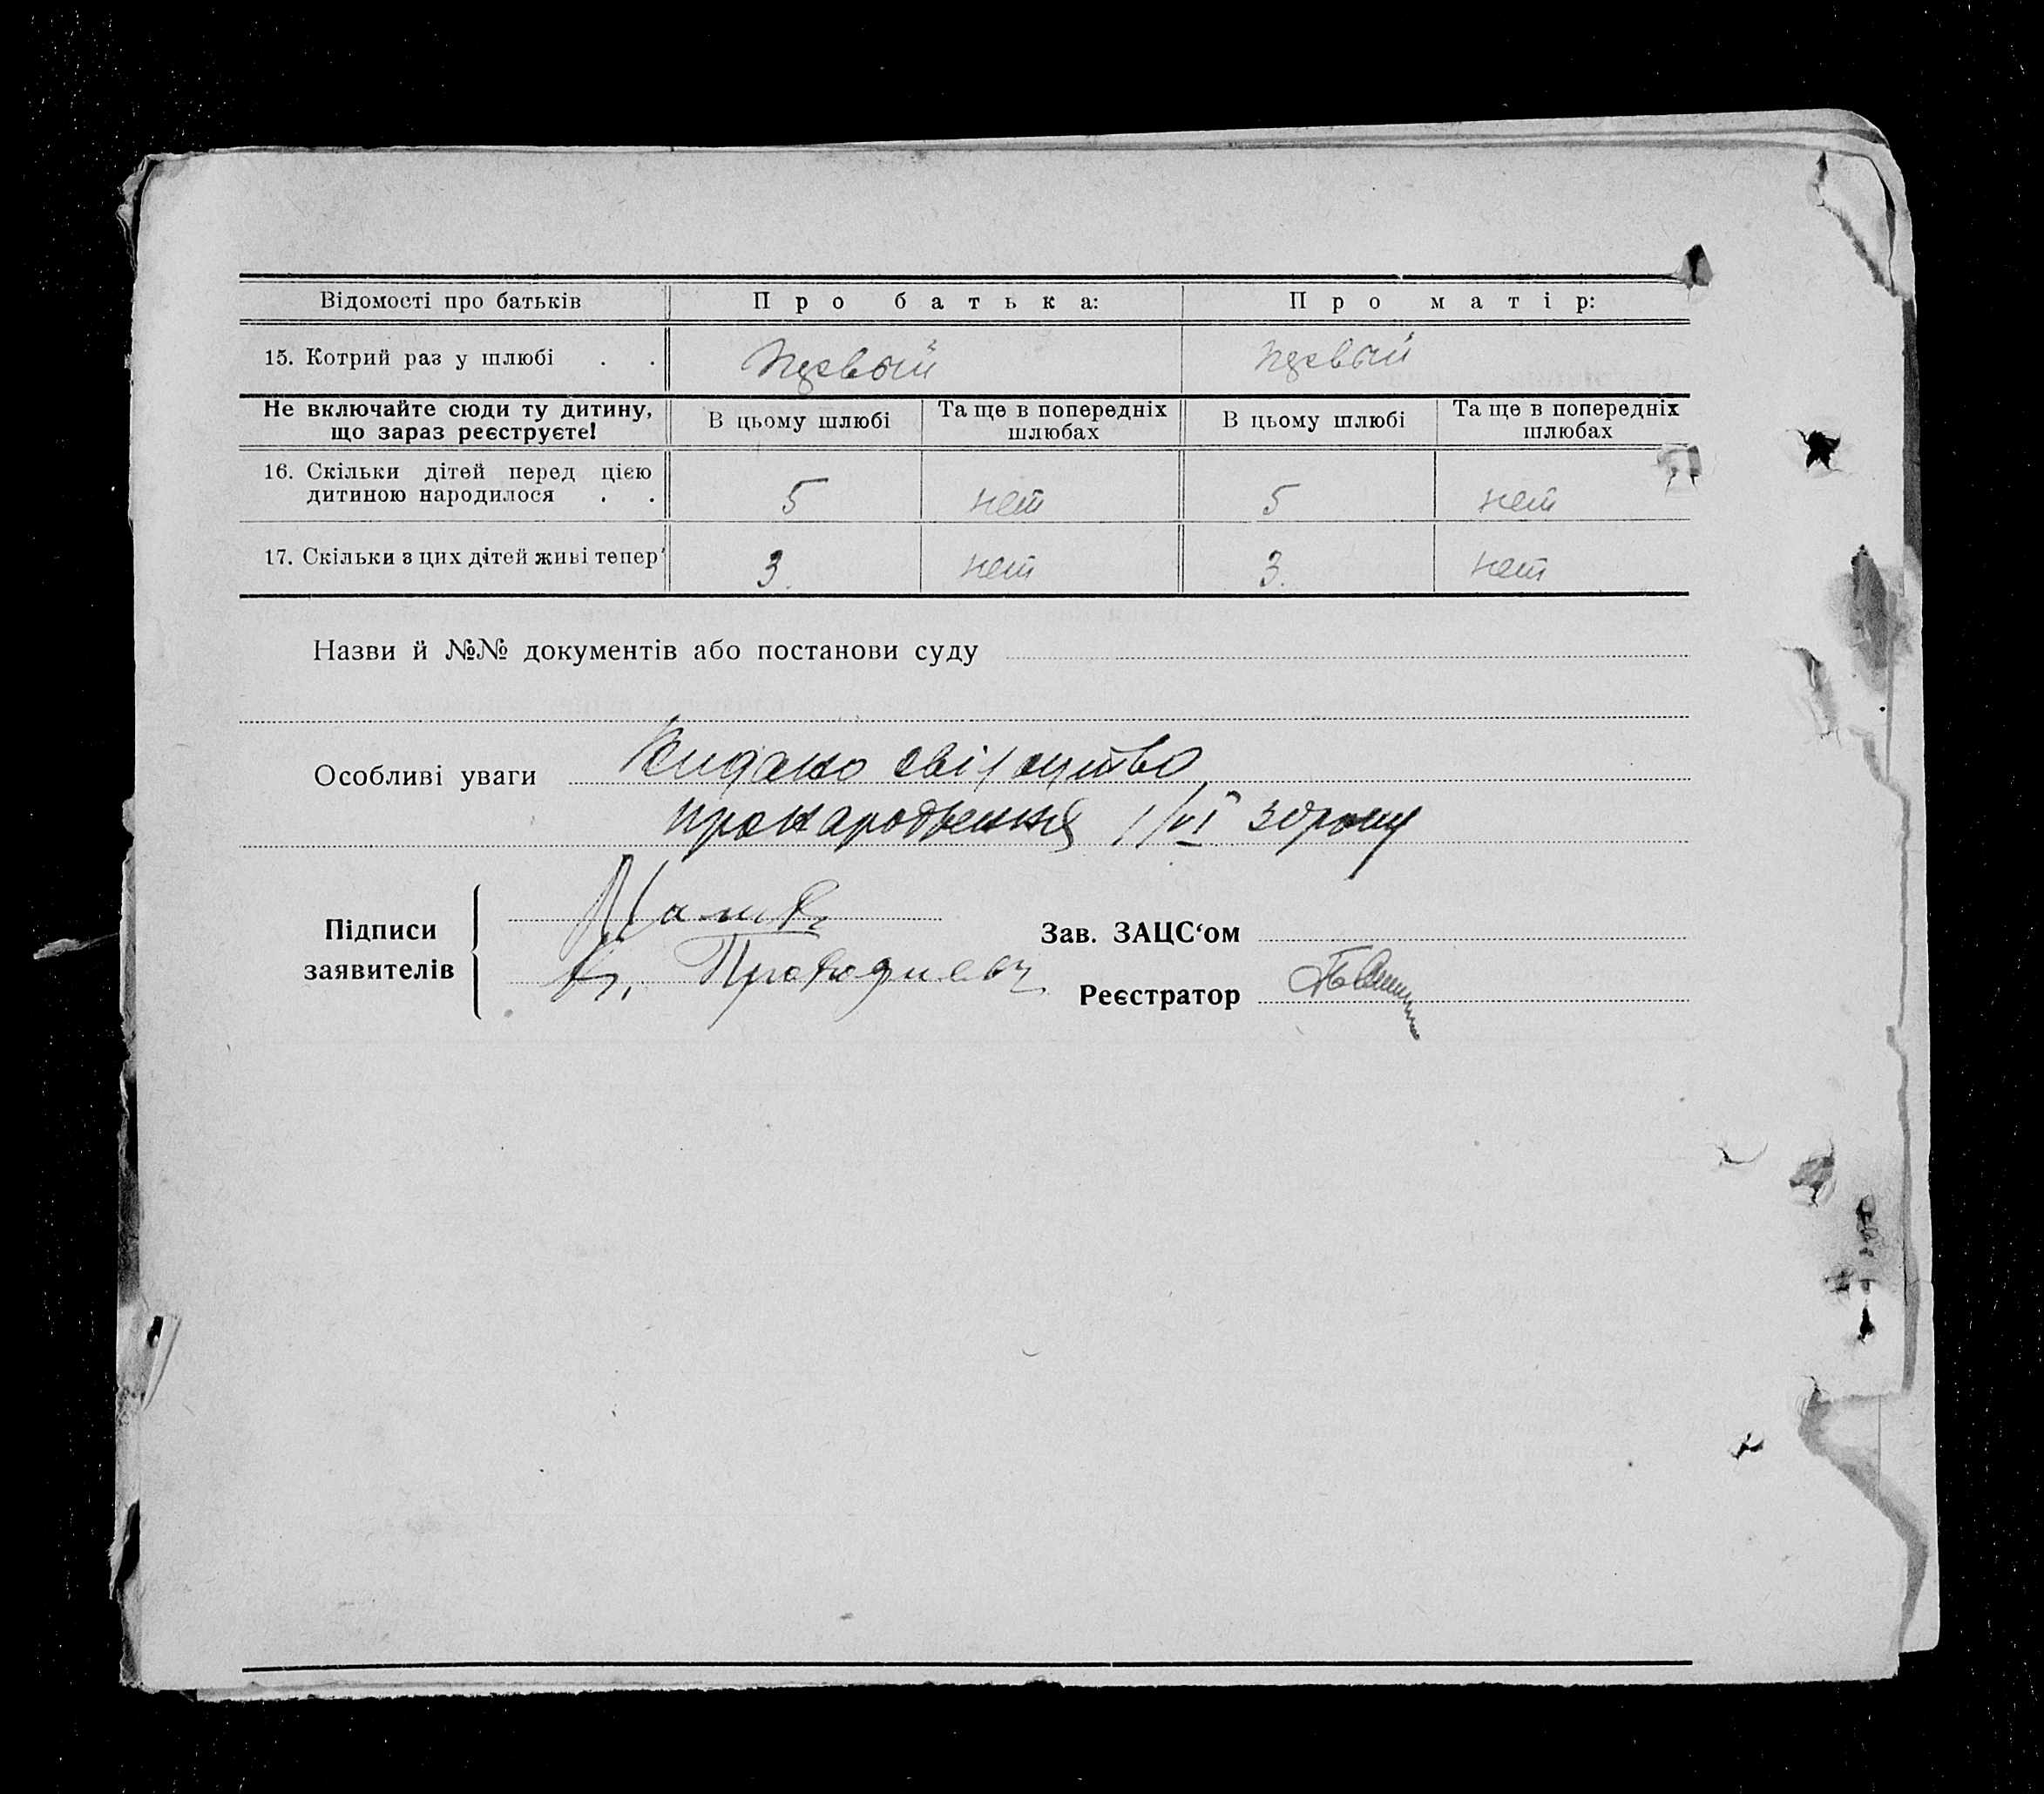 Відомості про батьків Про батька: Про матір:
15. Котрий раз у шлюбі . . первый первый
Не включайте сюди ту дитину, що зараз реєструєте! В цьому шлюбі Та ще в попередніх шлюбах В цьому шлюбі Та ще в попередніх шлюбах
16. Скільки дітей перед цією
дитиною народилося . . 5 нет 5 нет
17. Скільки з цих дітей живі тепер 3. нет 3. нет
Назви й №№ документів або постанови суду
Особливі уваги Видано свідоцтво
про народження 1/VI 30 року
Підписи
заявителів
Зав. ЗАЦС‘ом
Реєстратор